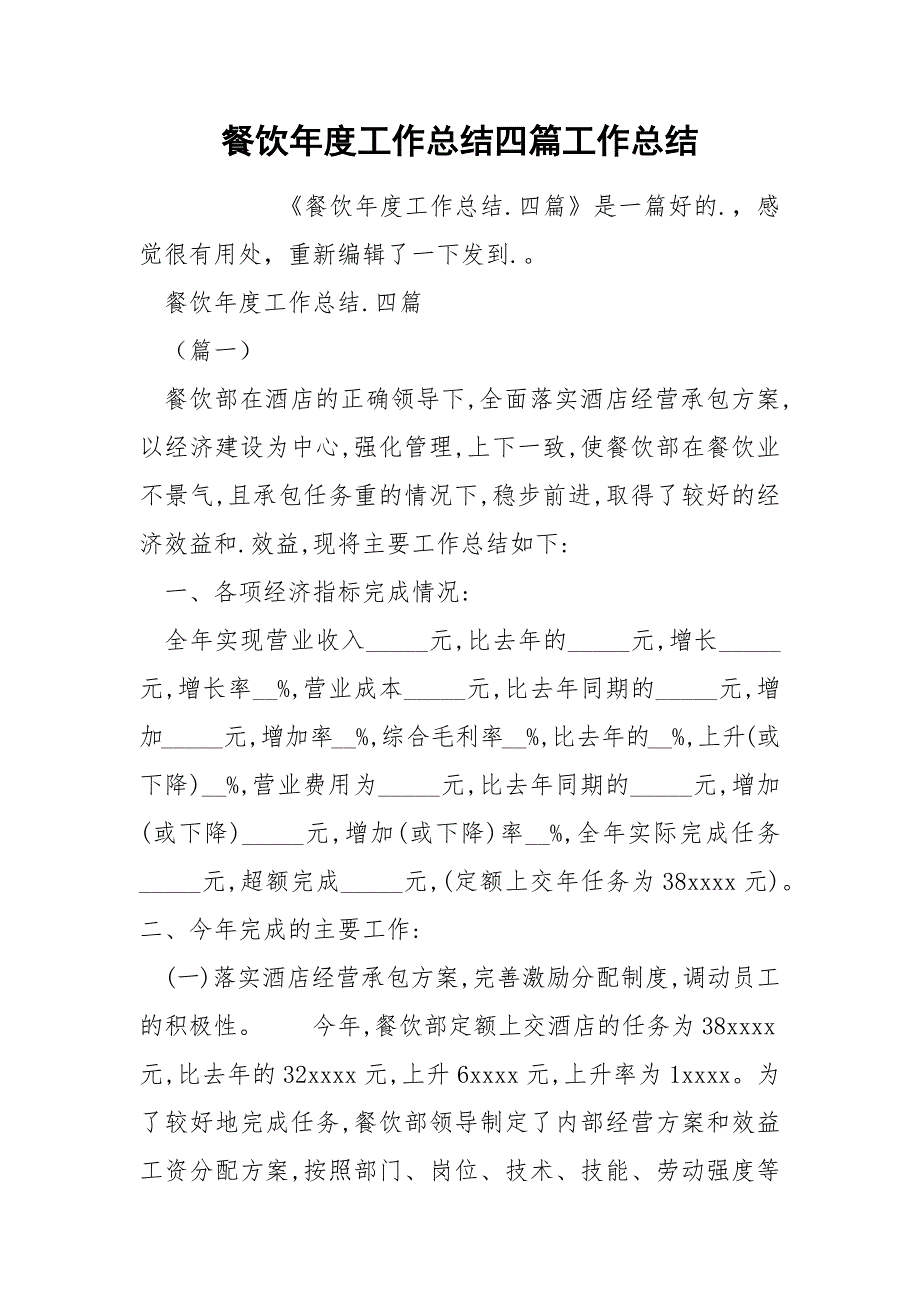 餐饮年度工作总结四篇工作总结
《餐饮年度工作总结.四篇》是一篇好的.，感
觉很有用处，重新编辑了一下发到.。
餐饮年度工作总结.四篇
（篇一）
餐饮部在酒店的正确领导下,全面落实酒店经营承包方案,
以经济建设为中心,强化管理,上下一致,使餐饮部在餐饮业
不景气,且承包任务重的情况下,稳步前进,取得了较好的经
济效益和.效益,现将主要工作总结如下:
一、各项经济指标完成情况:
全年实现营业收入_____元,比去年的_____元,增长_____
元,增长率__%,营业成本_____元,比去年同期的_____元,增
加_____元,增加率__%,综合毛利率__%,比去年的__%,上升(或
下降)__%,营业费用为_____元,比去年同期的_____元,增加
(或下降)_____元,增加(或下降)率__%,全年实际完成任务
_____元,超额完成_____元,(定额上交年任务为38xxxx元)。
二、今年完成的主要工作:
(一)落实酒店经营承包方案,完善激励分配制度,调动员工
的积极性。 今年,餐饮部定额上交酒店的任务为38xxxx
元,比去年的32xxxx元,上升6xxxx元,上升率为1xxxx。为
了较好地完成任务,餐饮部领导制定了内部经营方案和效益
工资分配方案,按照部门、岗位、技术、技能、劳动强度等